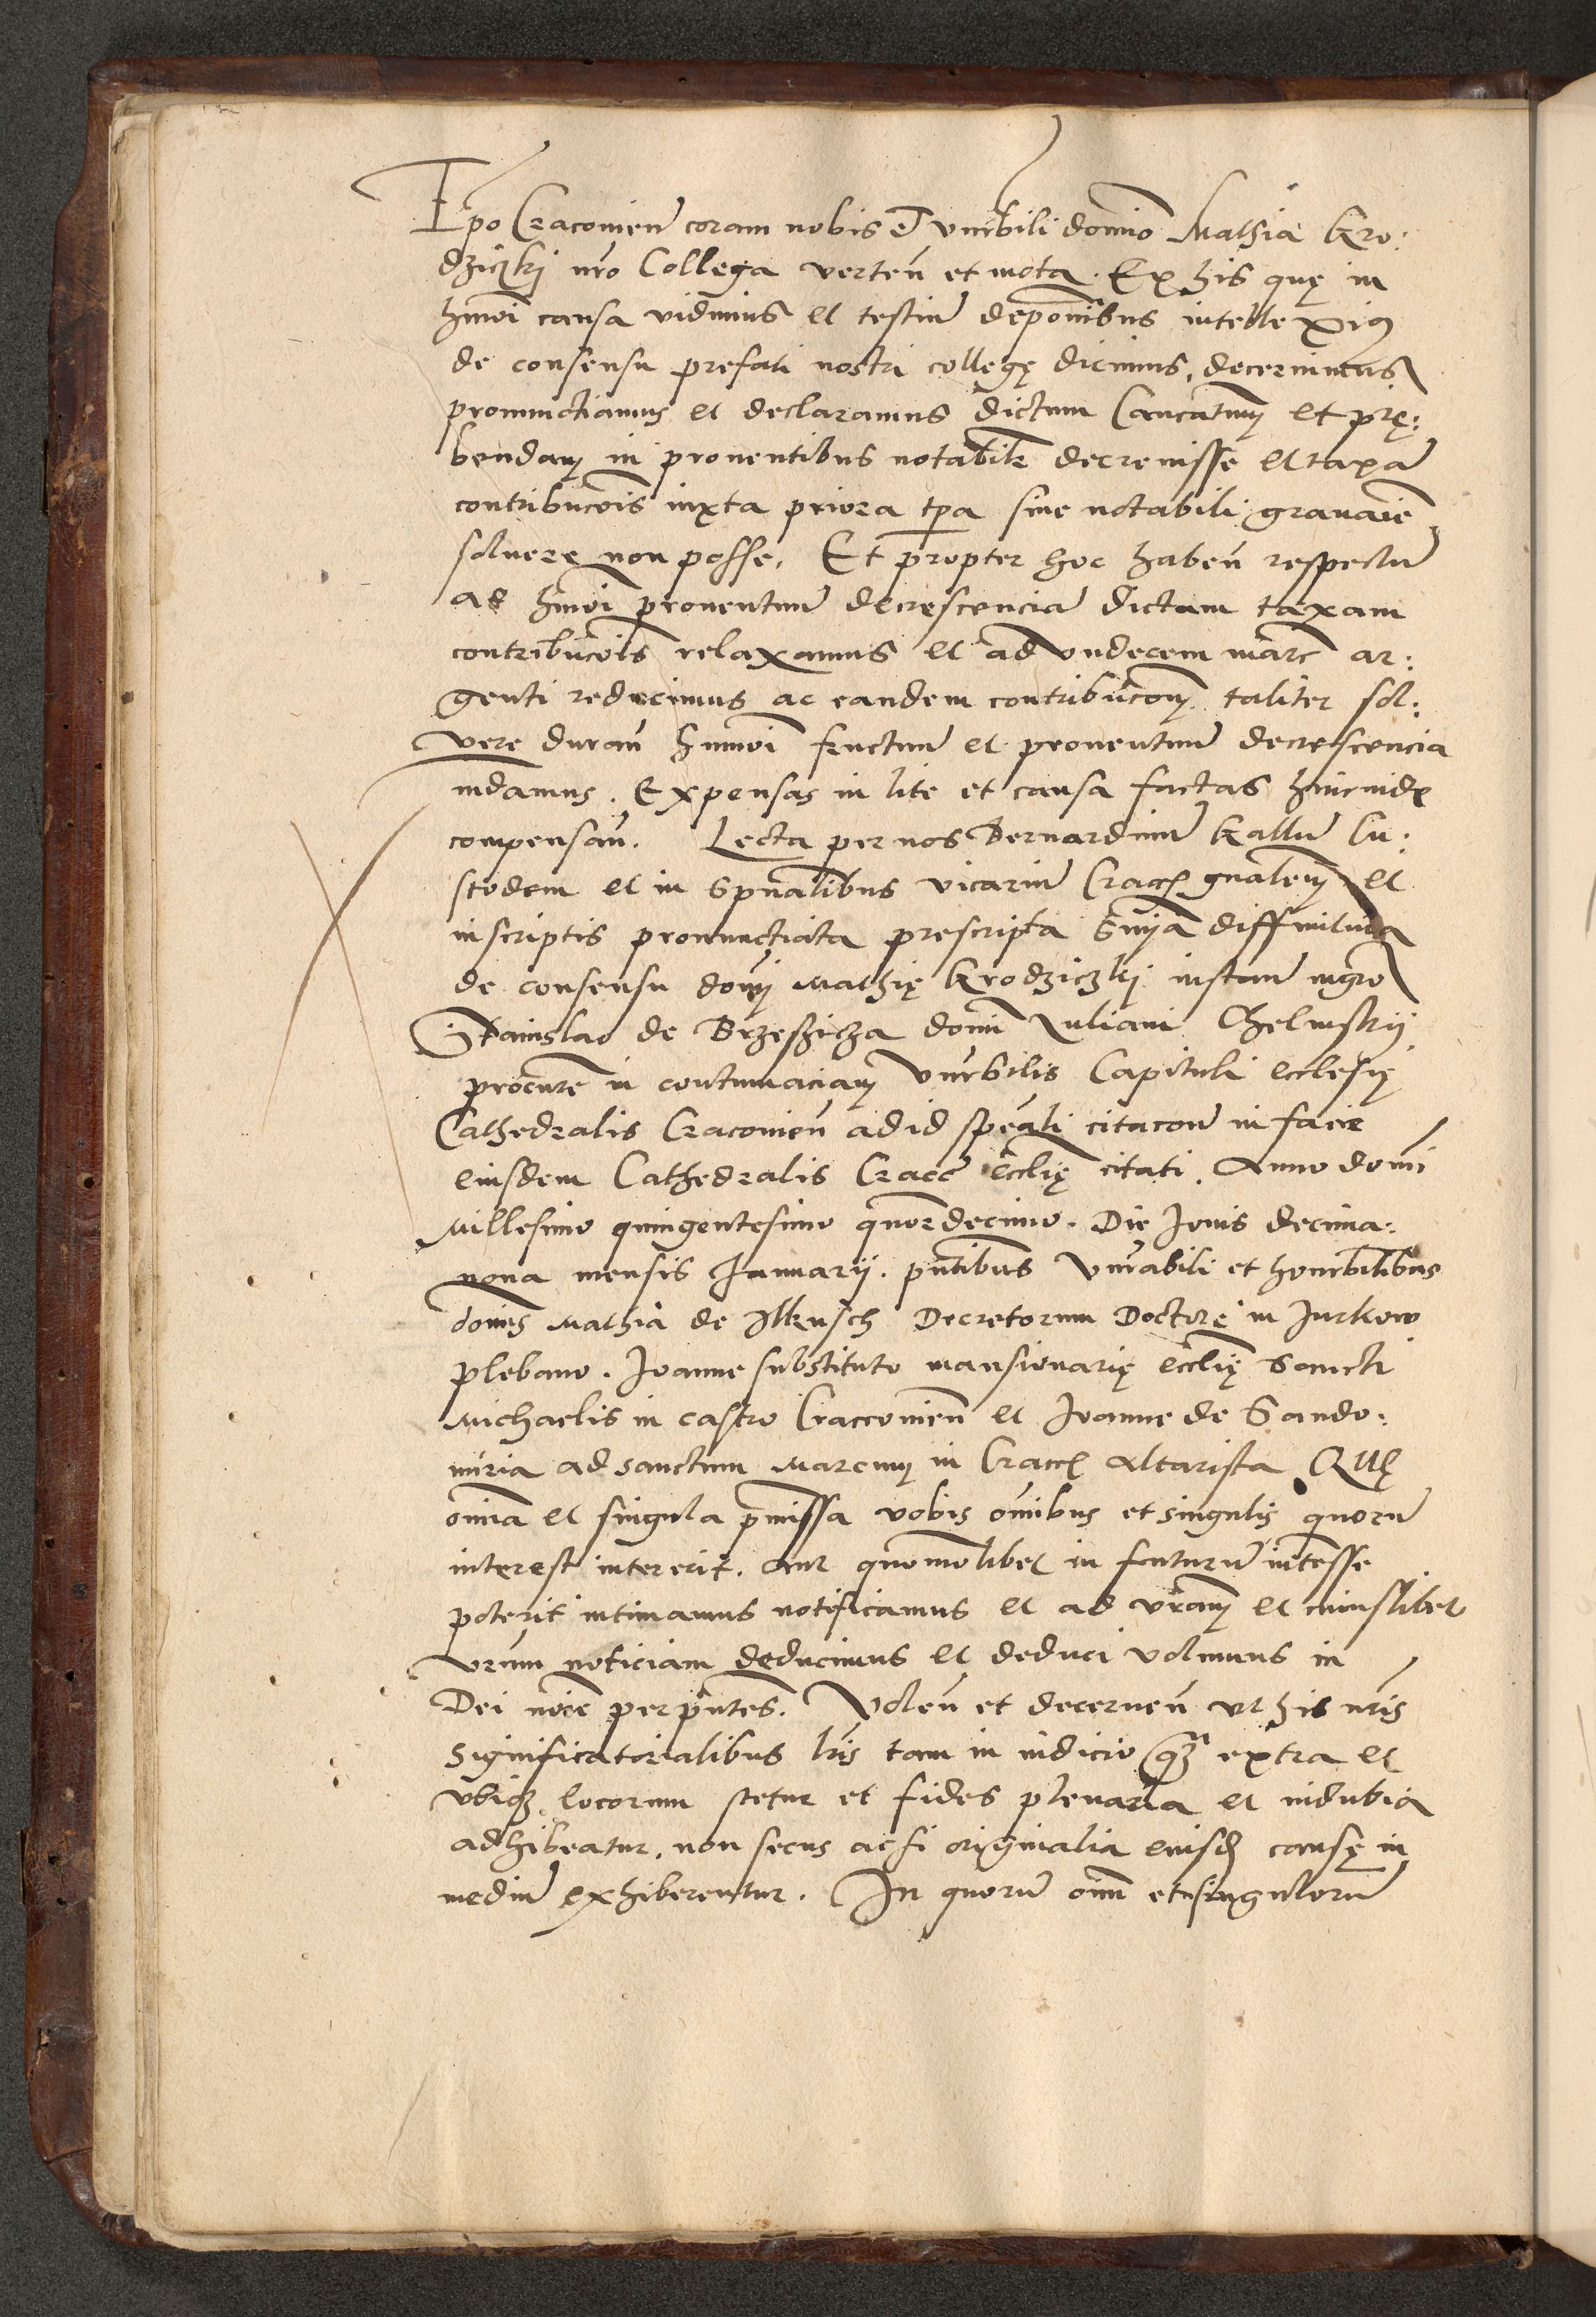 Epo Cracouien̄ coram nobis et vn̄rbili domino Mathia kro:
dziczkj nr̄o Collega verten̄ et mota. Ex his quę in
hmōi causa vidimus et testiū deponībus intelleximus
de consensu prefati nostri collegę dicimus, decernimus
pronunctiamus et declaramus dictum Cancatum et prę:
bendam in prouentibus notabilr̄ decreuisse et taxā
contribucōis iuxta priora tp̄a sine notabili grauaīe
soluere non posse. Et propter hoc haben̄ respectū
ad hmōi prouentuū decrescenciā dictam taxam
contribucōis relaxamus et ad vndecem marc̄ ar:
genti reducimus ac eandem contribucōem taliter sol:
vere duran̄ hmōi fructuū et prouentuū decrescencia
mdamus. Expensas in lite et causa factas hincinde
compensan̄. Lecta per nos Bernardinū kallū Cu:
stodem et in Spūalibus vicariū Cracc̄ gn̄alem et
in scriptis pronunctiata prescripta Sn̄ia diffinitiua
de consensu domī Mathię krodziczkj instan̄ mgr̄o
Stanislao de Brzeszicza domī Iuliani Chelmskij
procurē in contumaciam vn̄rbilis Capituli ecclesię
Cathedralis Cracouien̄ ad id spēali citacone in facie
eiusdem Cathedralis Cracc̄ ecclię citati. Anno domī
Millesimo quingentesimo quordecimo. Die Iouis decima:
nona mensis Ianuarij. pn̄tibus vn̄rabili et honrbilibus
domīs Mathia de Ilkusch Decretorum Doctore in Iurkow
plebano. Ioanne substituto mansionarię ecclię Sancti
Michaelis in castro Craccouien̄ et Ioanne de Sando:
miria ad sanctum Marcum in Cracc̄ Altarista QUę
om̄ia et singula pm̄issa vobis om̄ibus et singulis quorū
interest intererit. aut quomolibet in futurū int̄esse
poterit intimamus notificamus et ad vr̄am et cuiuslibet
vrum noticiam deducimus et deduci volumus in
Dei noīe per pn̄tes. Volen̄ et decernen̄ vt his nr̄is
Significatorialibus lr̄is tam in iudicio q̄ȝ extra et
vbiqȝ locorum stetur et fides plenaria et indubia
adhibeatur. non secus ac si originalia eiusd̄ causę in
mediū exhiberentur. In quorū oīm et singulorū